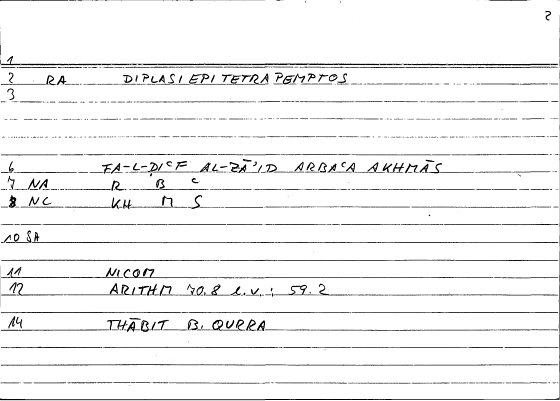 2
1
2 RA DIPLASIEPITETRAPEMPTOS
3
6 FA-L-ḌIʿF AL-ZĀʾID ARBAʿA AKHMĀS
7 NA R B ʿ
8 NC KH M S
10 SA
11 NICOM
12 ARITHM 70.8 l.v.; 59.2
14 THĀBIT B. QURRA